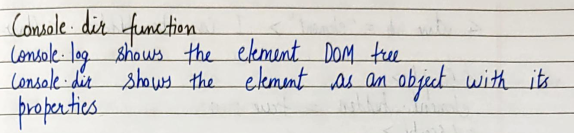 Console.dir function
Console.log shows the element DOM tree
Console.dir shows the element as an object with its
properties